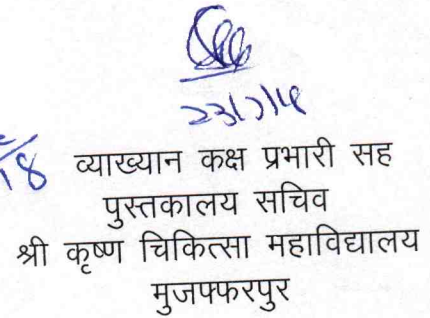 23/7/18
18 व्याख्यान कक्ष प्रभारी सह
पुस्तकालय सचिव
श्री कृष्ण चिकित्सा महाविद्यालय
मुजफ्फरपुर